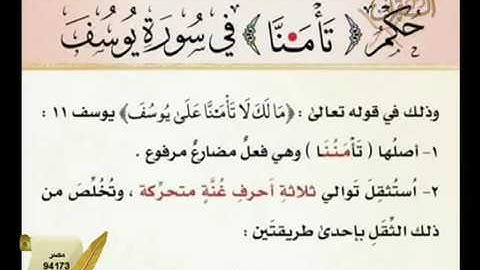 حُكْمُ ﴿ تَأْمَ۫نَّا ﴾ في سُورَةِ يُوسُفَ
وذلك في قوله تعالىٰ : ﴿مَا لَكَ لَا تَأْمَ۫نَّا عَلَىٰ يُوسُفَ﴾ يوسف ١١ :
١- أصلُها ( تَأْمَنُنَا ) وهي فعلٌ مضارعٌ مرفوع .
٢- اُستُثقِلَ تَوالي ثلاثةِ أحرفِ غُنَّةٍ متحرِّكة ، وتُخُلِّصَ من
ذلك الثِّقَلِ بإحدىٰ طريقتَين :
مصدر
94173